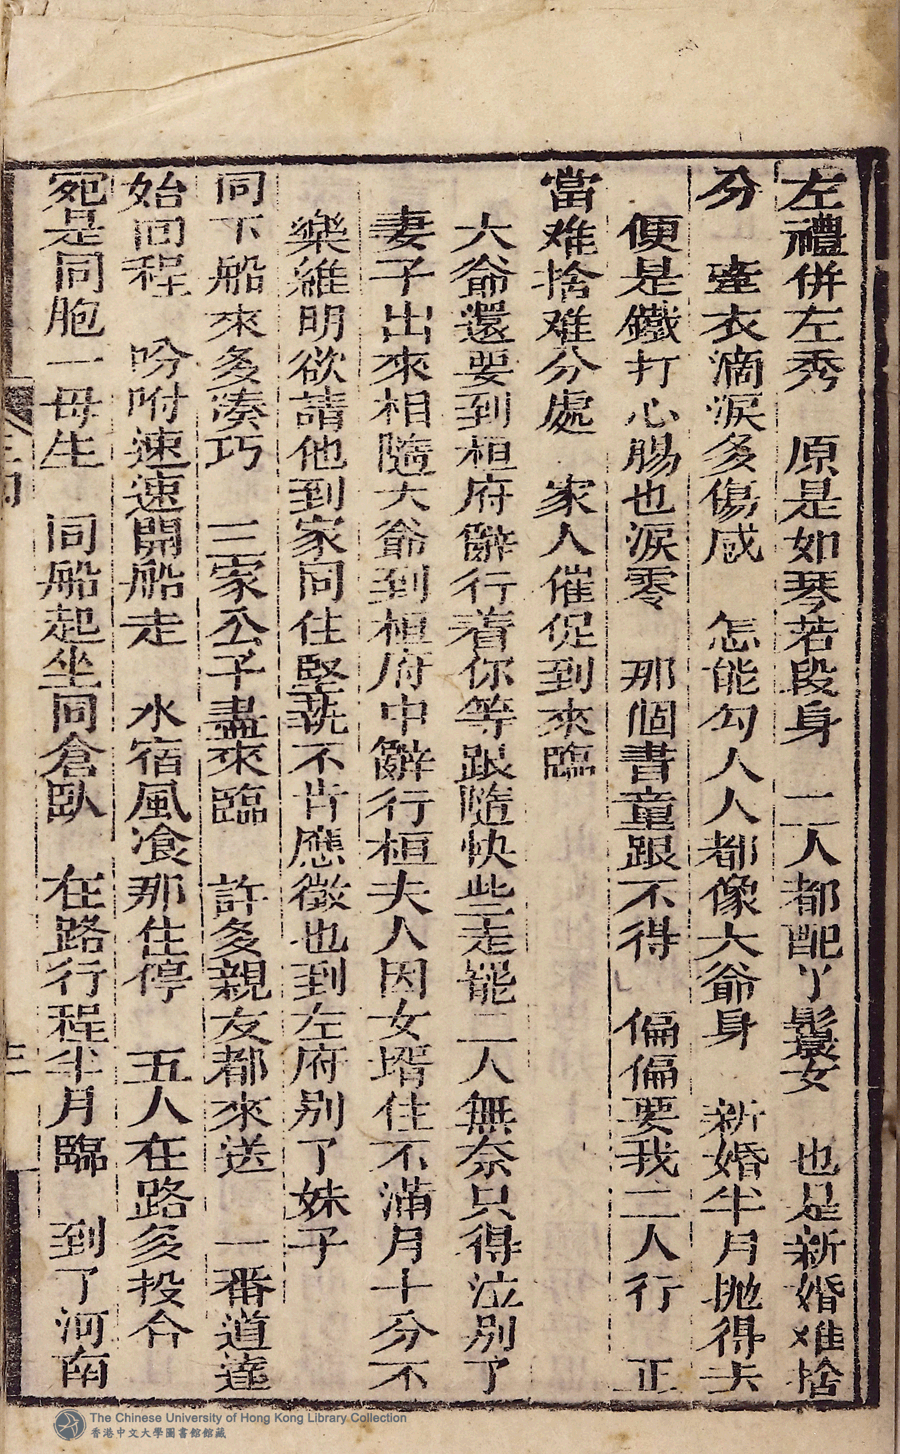 左禮併左秀　原是如琴若段身　二人都配丫鬟女　也是新婚难捨
分　牽衣滴淚多傷感　怎能勾人人都像大爺身　新婚半月拋得去
便是鐵打心腸也淚零　那個書童跟不得　偏偏要我二人行　正
當难捨难分處　家人催促到來臨
大爺還要到桓府辭行着你等跟隨快些走罷二人無奈只得泣别了
妻子出來相隨大爺到桓府中辭行桓夫人因女壻住不滿月十分不
樂維明欲請他到家同住堅执不肯應徵也到左府别了妹子
同下船來多凑巧　三家公子盡來臨　許多親友都來送　一番道達
始回程　吩咐速速開船走　水宿風飡那住停　五人在路多投合
宛是同胞一母生　同船起坐同倉臥　在路行程半月臨　到了河南
三
The Chinese University of Hong Kong Library Collection
香港中文大學圖書館館藏